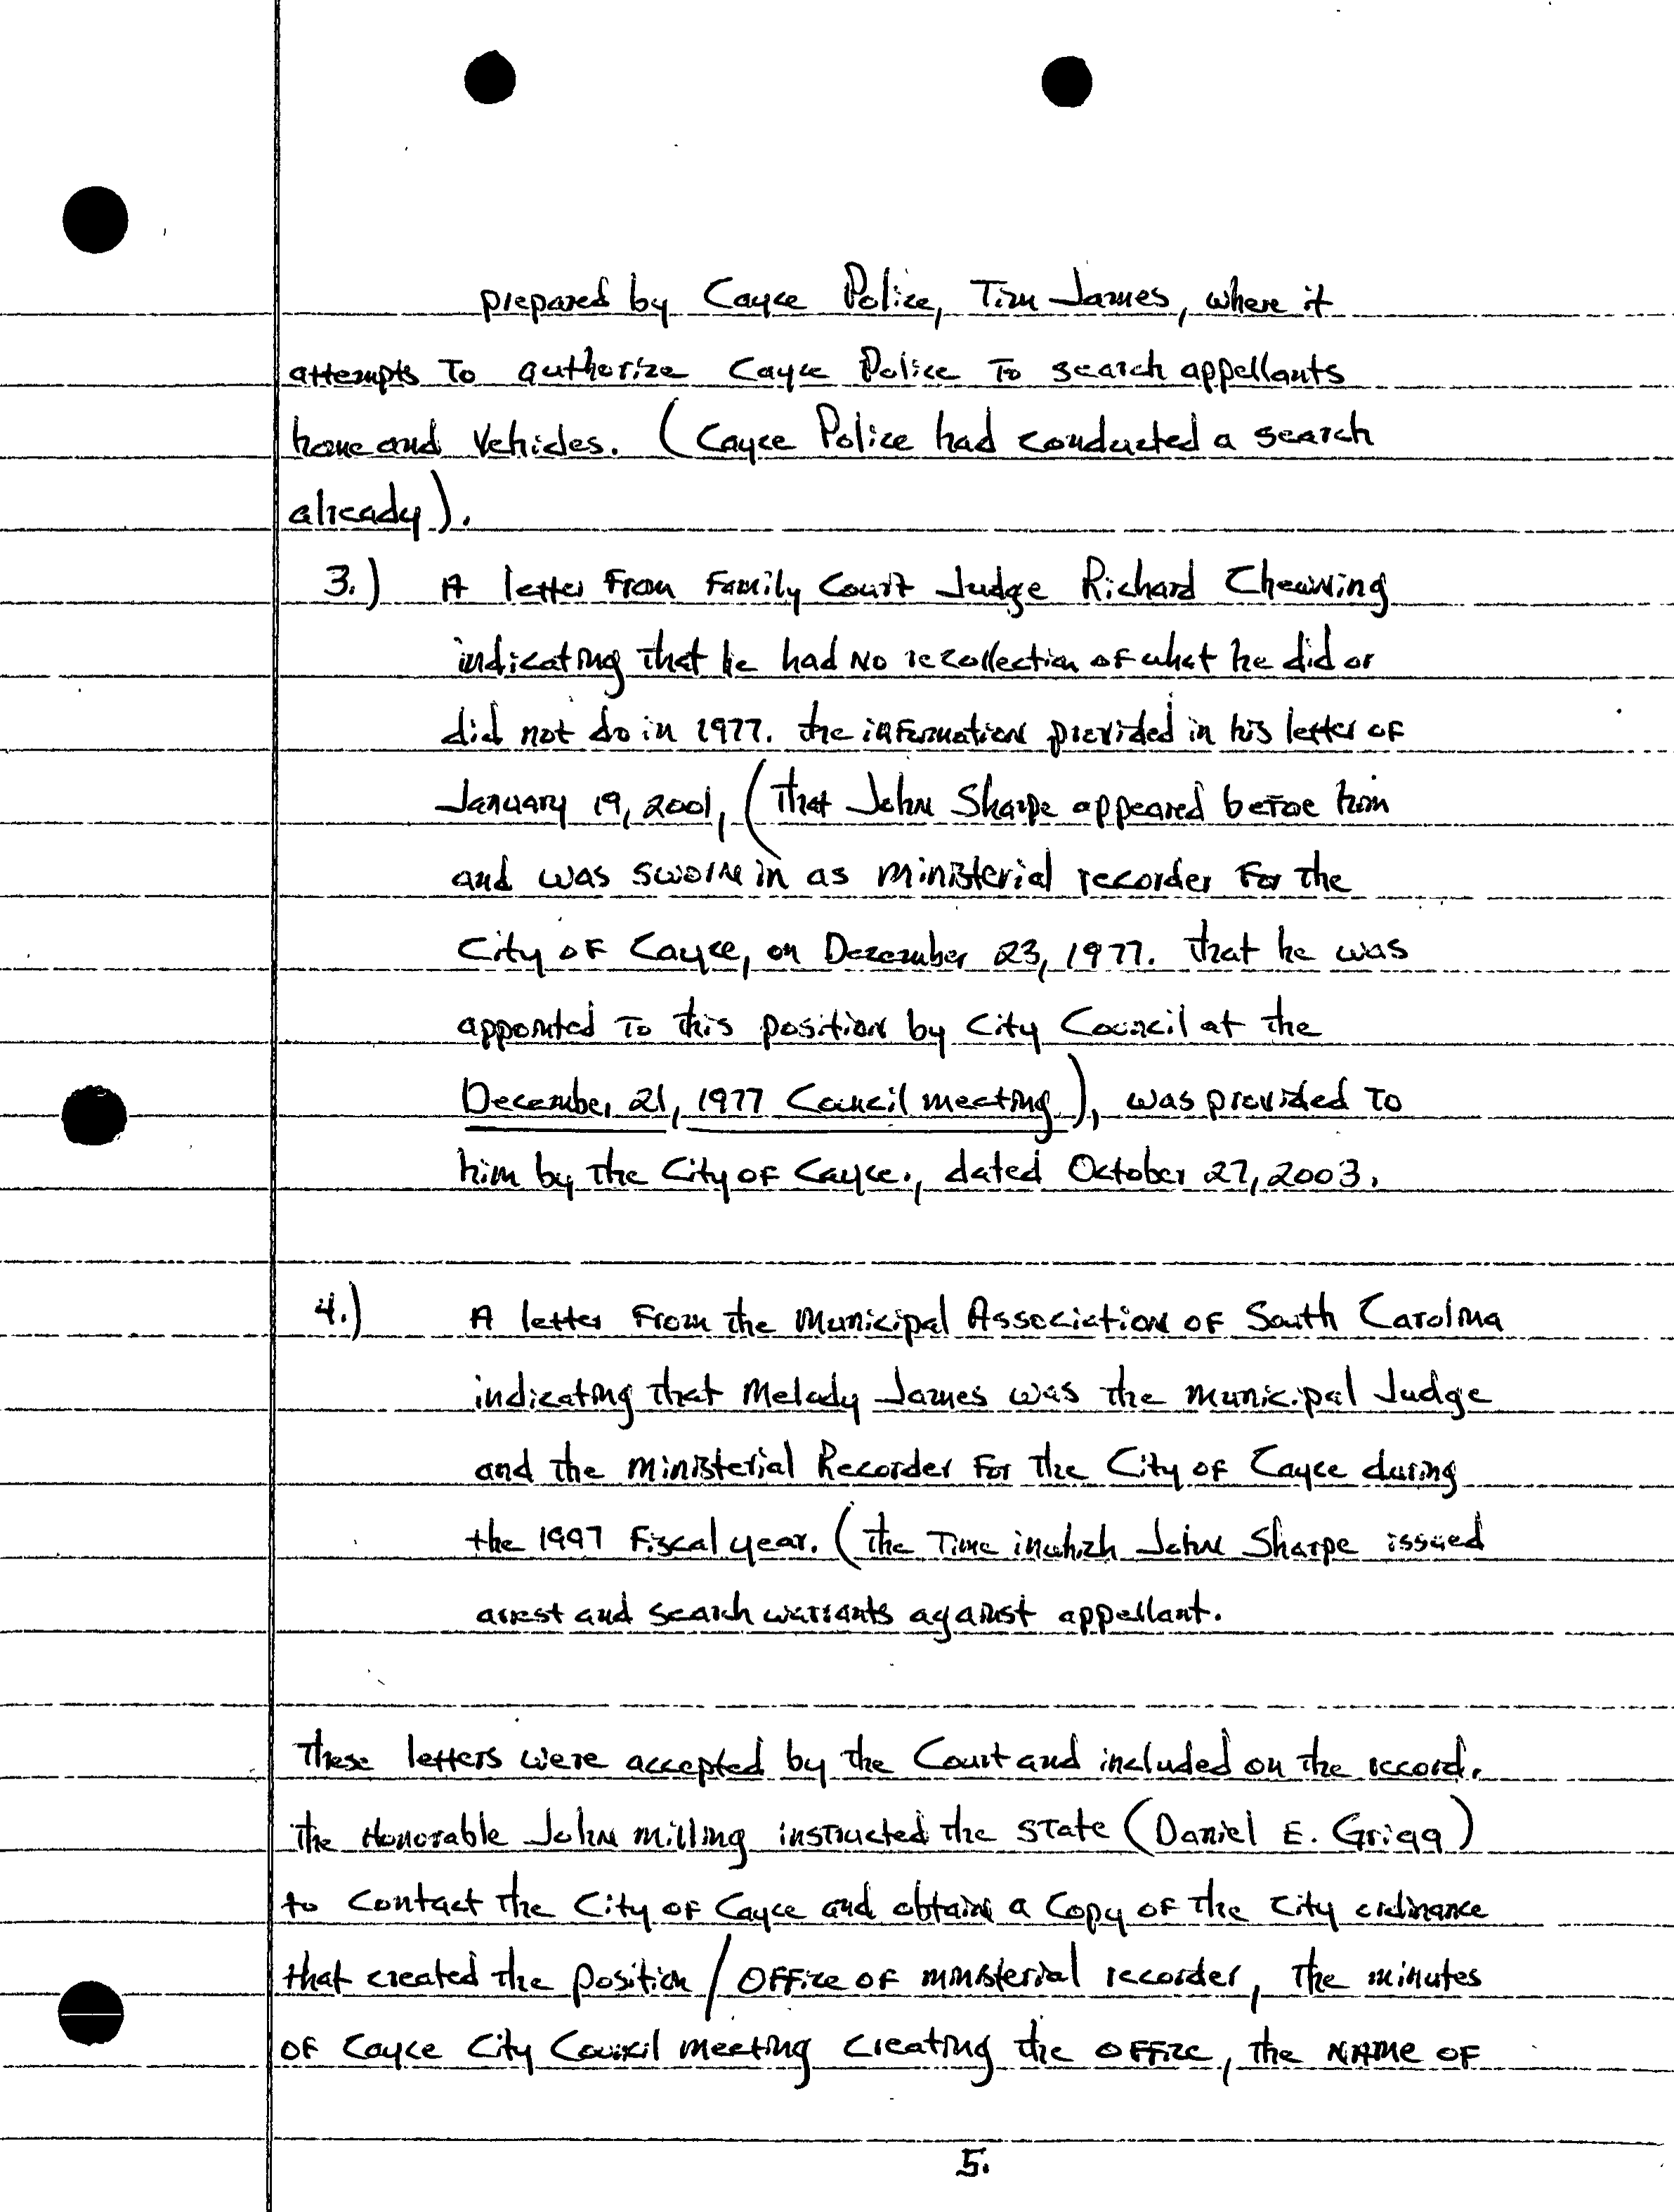 prepared by Cayce Police, Tim James, where it
attempts To authorize Cayce Police To search appellants
home and Vehicles. (Cayce Police had conducted a search
already).
3.) A letter From Family Court Judge Richard Chewning
indicating that he had No recollection of what he did or
did not do in 1977. the information provided in his letter of
January 19, 2001, (that John Sharpe appeared before him
and was sworn in as ministerial recorder For the
City of Cayce, on December 23, 1977. that he was
appointed To this position by City Council at the
December 21, 1977 Council meeting), was provided To
him by the City of Cayce., dated October 27, 2003.
4.) A letter From the Municipal Association of South Carolina
indicating that Melody James was the municipal Judge
and the ministerial Recorder For the City of Cayce during
the 1997 Fiscal year. (the Time in which John Sharpe issued
arrest and search warrants against appellant.
These letters were accepted by the Court and included on the record.
The Honorable John Milling instructed the State (Daniel E. Grigg)
to contact the City of Cayce and obtain a Copy of the City ordinance
that created the position / OFFice of ministerial recorder, the minutes
of Cayce City Council meeting creating the OFFice, the NAME OF
5.